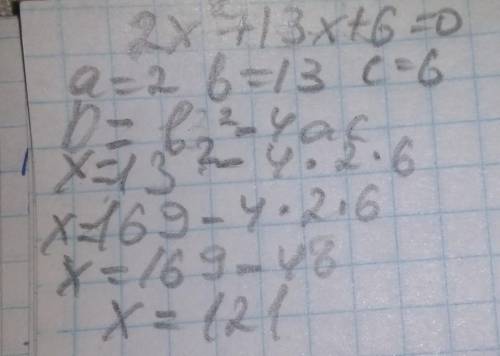 2x²+13x+6=0
a=2 b=13 c=6
D=b²-4ac
x=13²-4·2·6
x=169-4·2·6
x=169-48
x=121